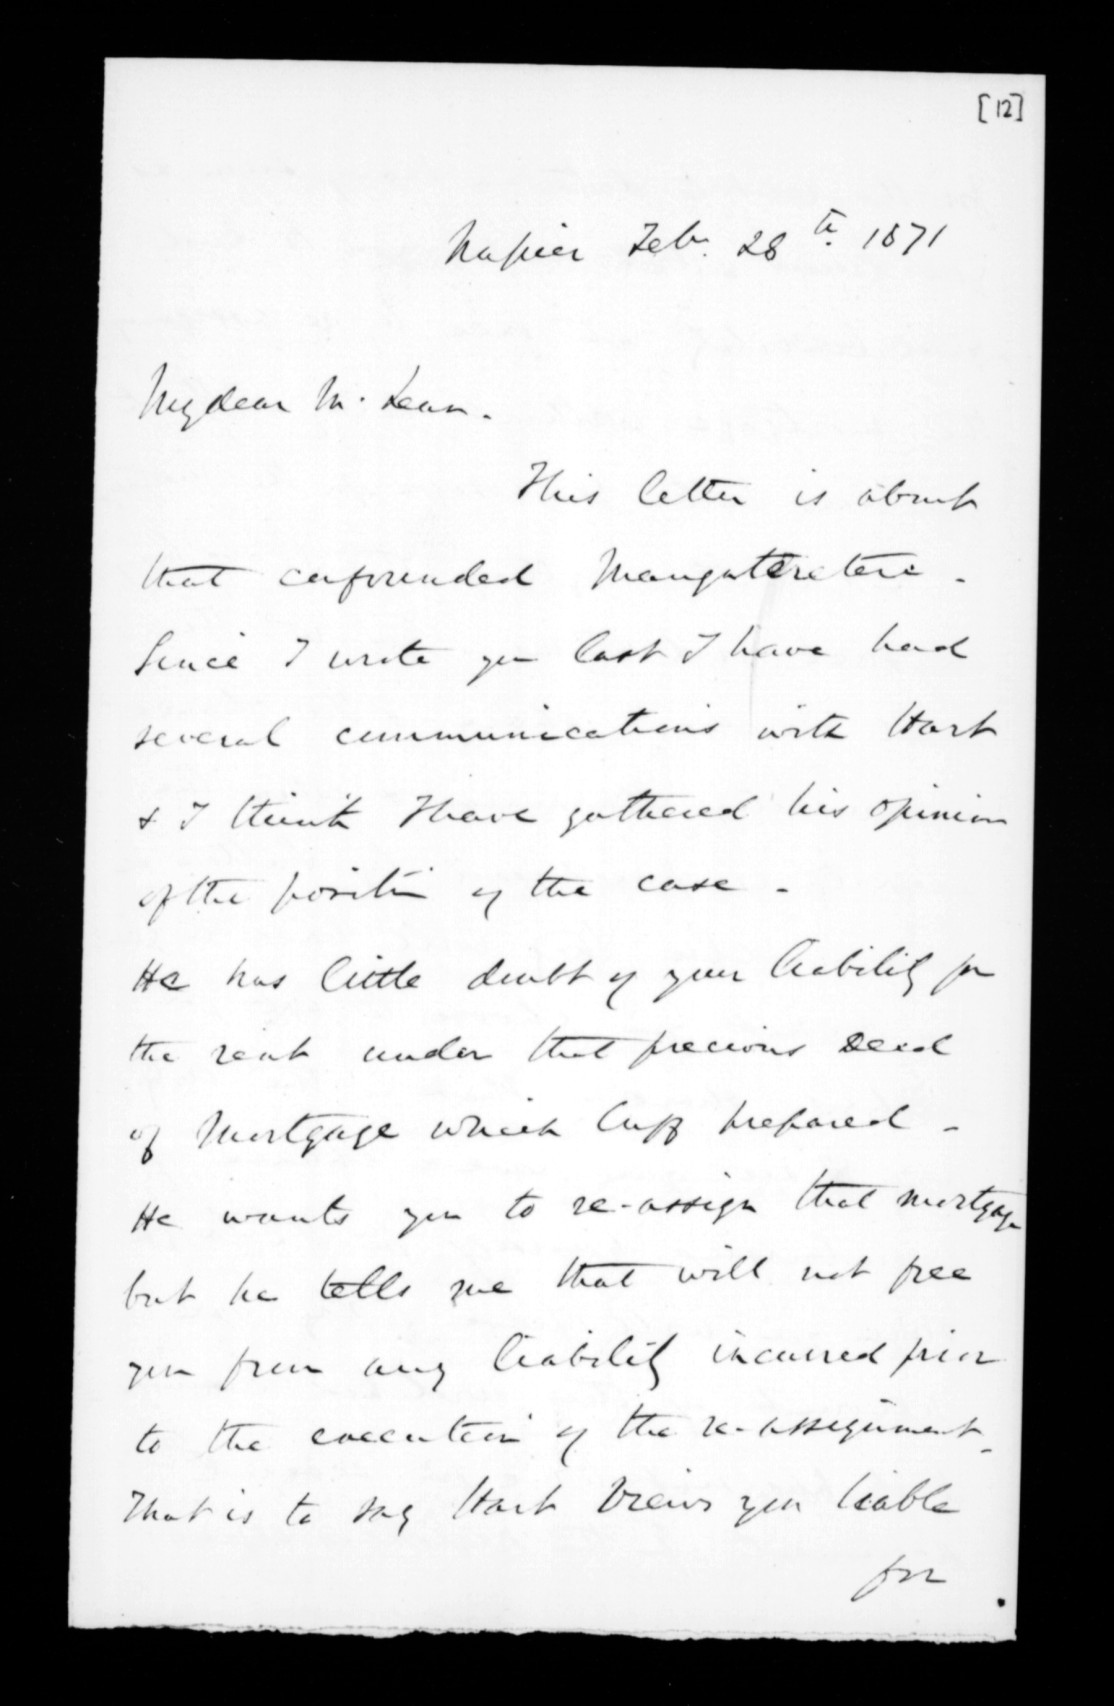 [12]
Napier Feb. 28th. 1871
My dear McLean.
This letter is about
that confounded Mangateretere.
Since I wrote you last I have had
several communications with Hart
& I think I have gathered his opinion
of the position of the case -
He has little doubt of your liability for
the rent under that precious Deed
of Mortgage which Cuff prepared -
He wants you to re-assign that mortgage
but he tells me that will not free
you from any liability incurred prior
to the execution of the re-assignment.
That is to say Hart views you liable
for